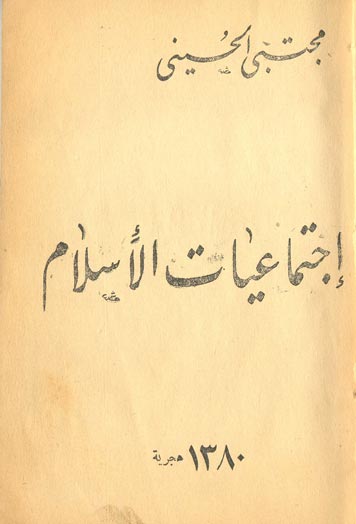 مجتبى الحسيني
إجتماعيات الأسلام
١٣٨٠ هجرية